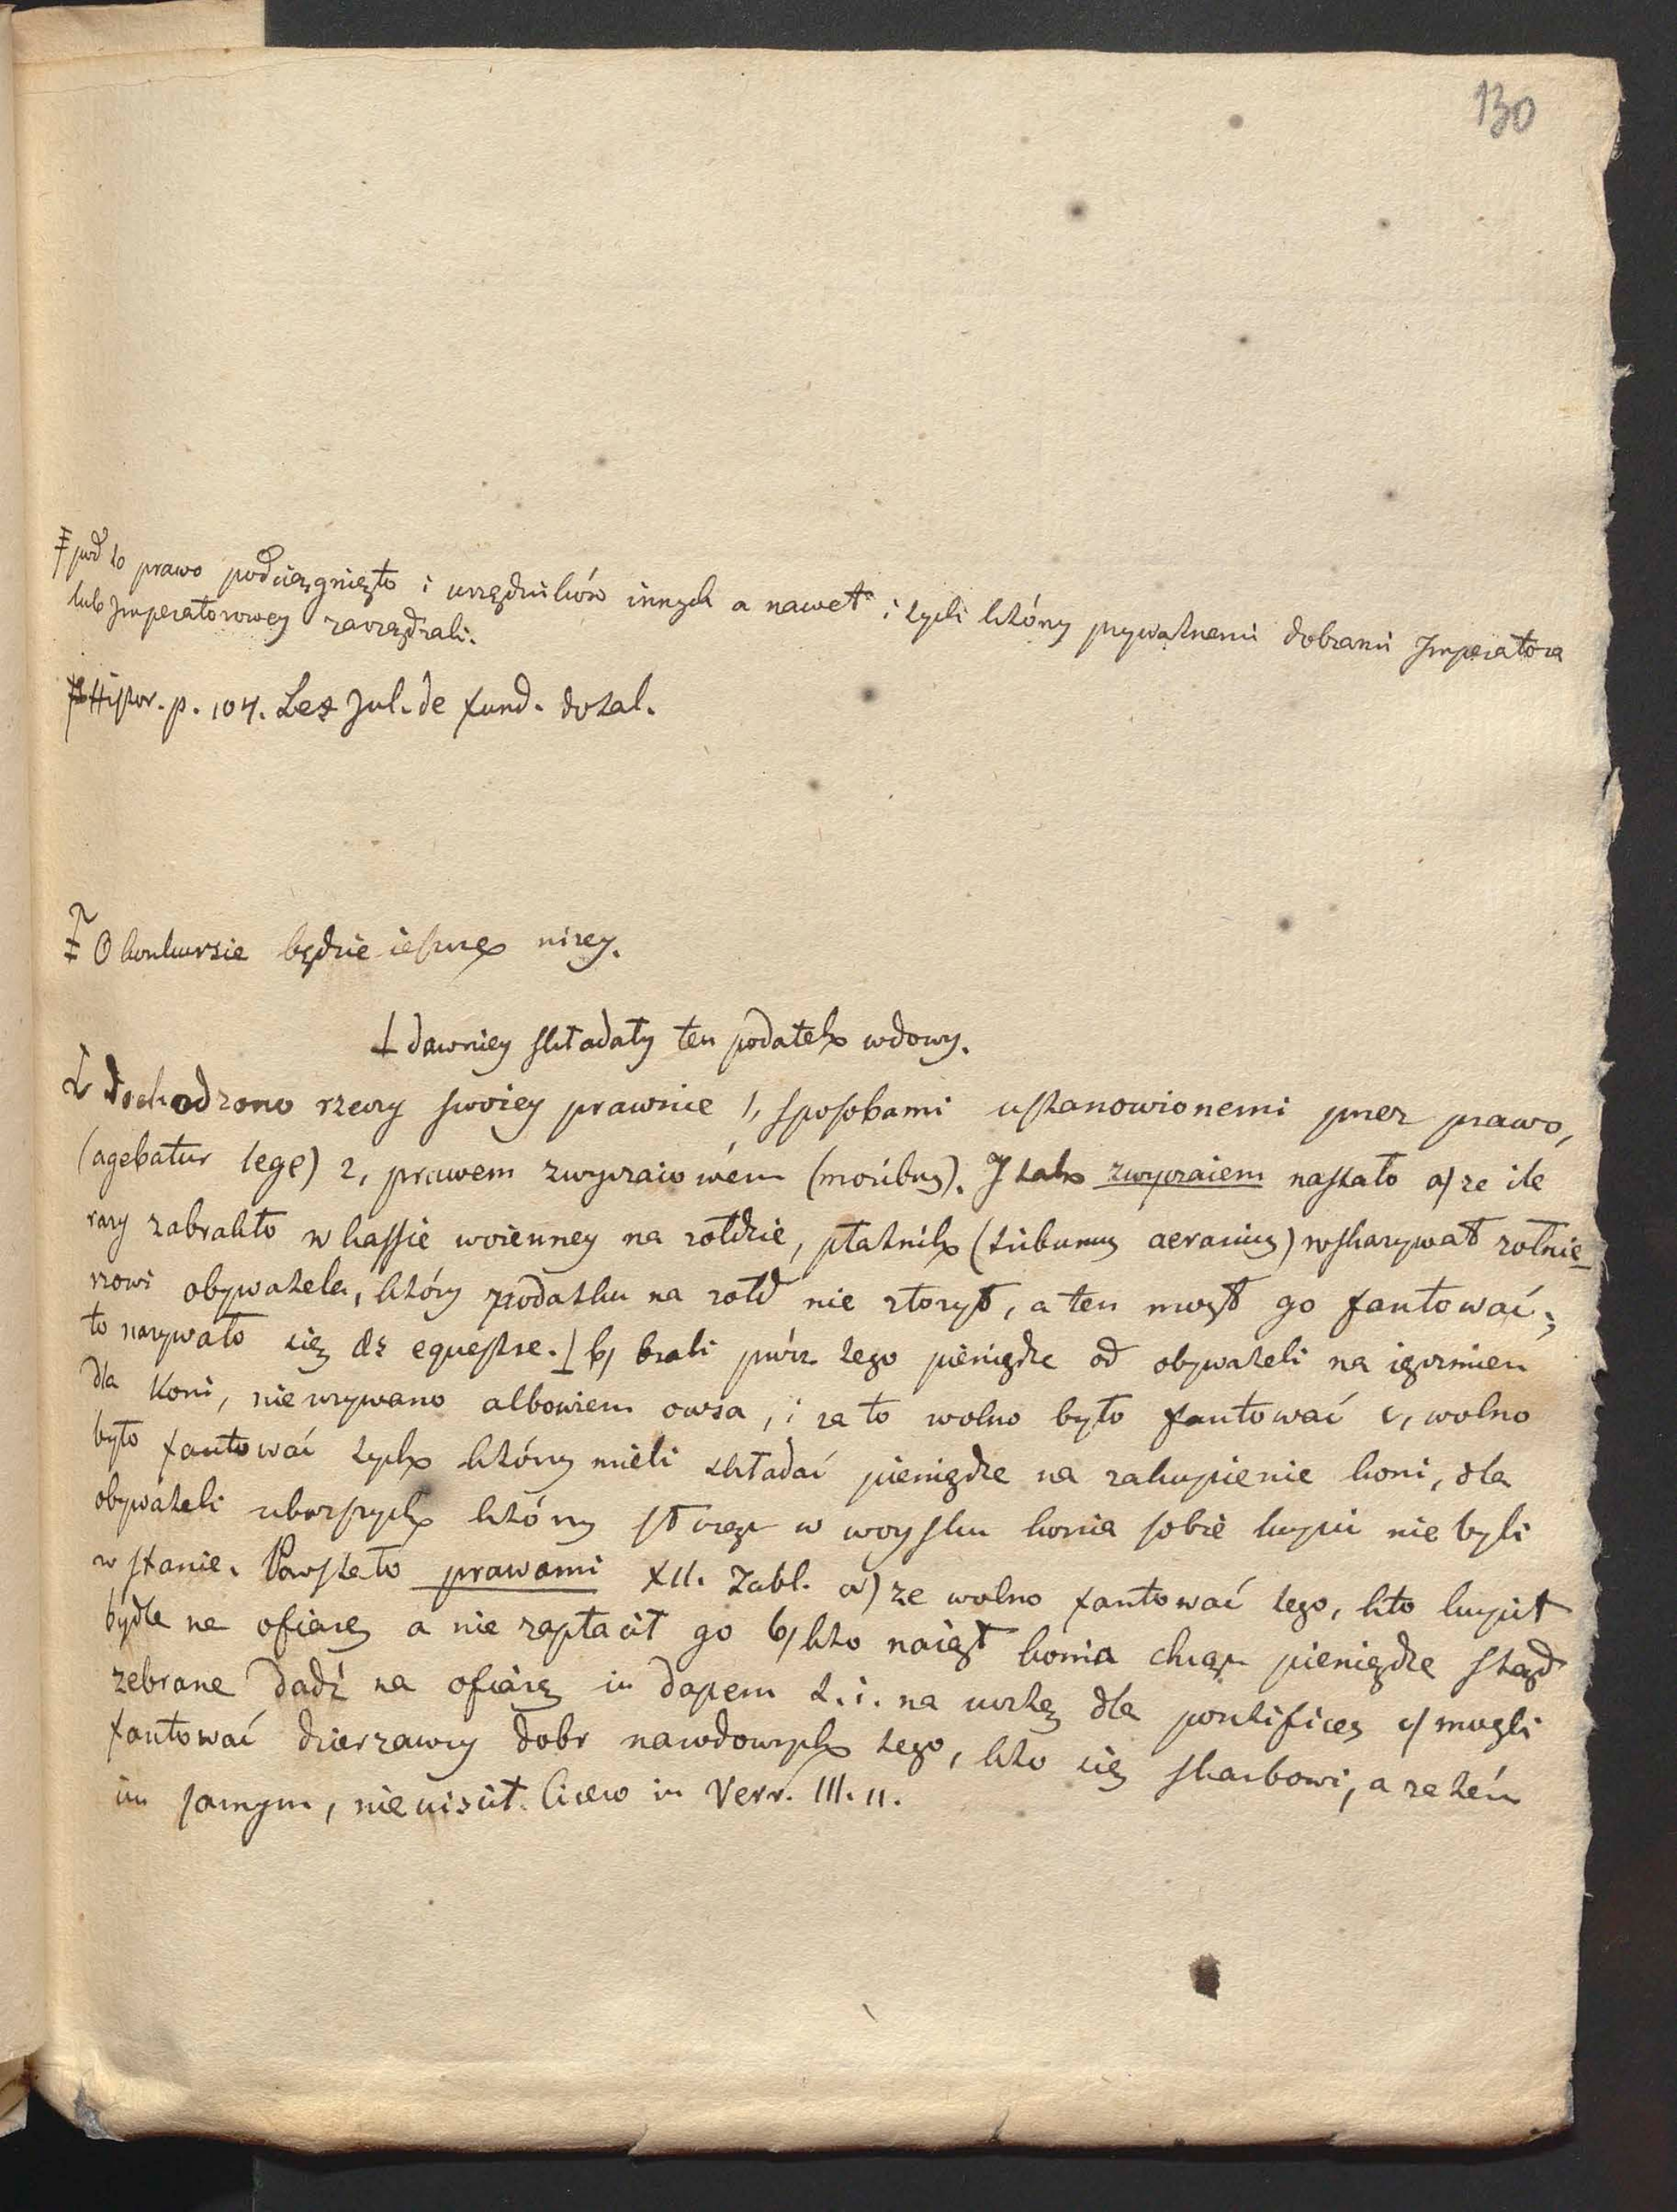 130
pod to prawo podciągnięto i urzędników innych a nawet i tych którzy prywatnemi dobrami Imperatora
lub Imperatorowey zarządzali.
Histor. p. 104. Lex Jul. de fund. dotal.
O konkursie będzie ieszcze niżey.
⊥ dawniey składały ten podatek wdowy.
Dochodzono rzeczy swoiey prawnie 1, sposobami ustanowionemi przez prawo,
(agebatur lege) 2, prawem zwyczaiowém (moribus). J tak zwyczaiem nastało a) że ile
razy zabrakło w kassie woienney na żołdzie, płatnik (tribunus aerarius) wskazywał żołnie-
rzowi obywatela, który podatku na żołd nie złożył, a ten mógł go fantować;
to nazywało się æs equestre. ⊥ b) brali prócz tego pieniądze od obywateli na ięczmien
dla koni, nie używano albowiem owsa, i za to wolno było fantować c, wolno
było fantować tych którzy mieli składać pieniądze na zakupienie koni, dla
obywateli uboższych którzy służąc w woysku konia sobie kupić nie byli
w stanie. Powstało prawami XII. Tabl. a) że wolno fantować tego, kto kupił
bydle na ofiarę a nie zapłacił go b) kto naiął konia chcąc pieniądze stąd
zebrane dadź na ofiarę in dapem t. i. na ucztę dla pontifices c) mogli
fantować dzierzawcy dobr narodowych tego, kto się skarbowi, a zatém
im samym, nie uiścił. Cicero in Verr. III. 11.